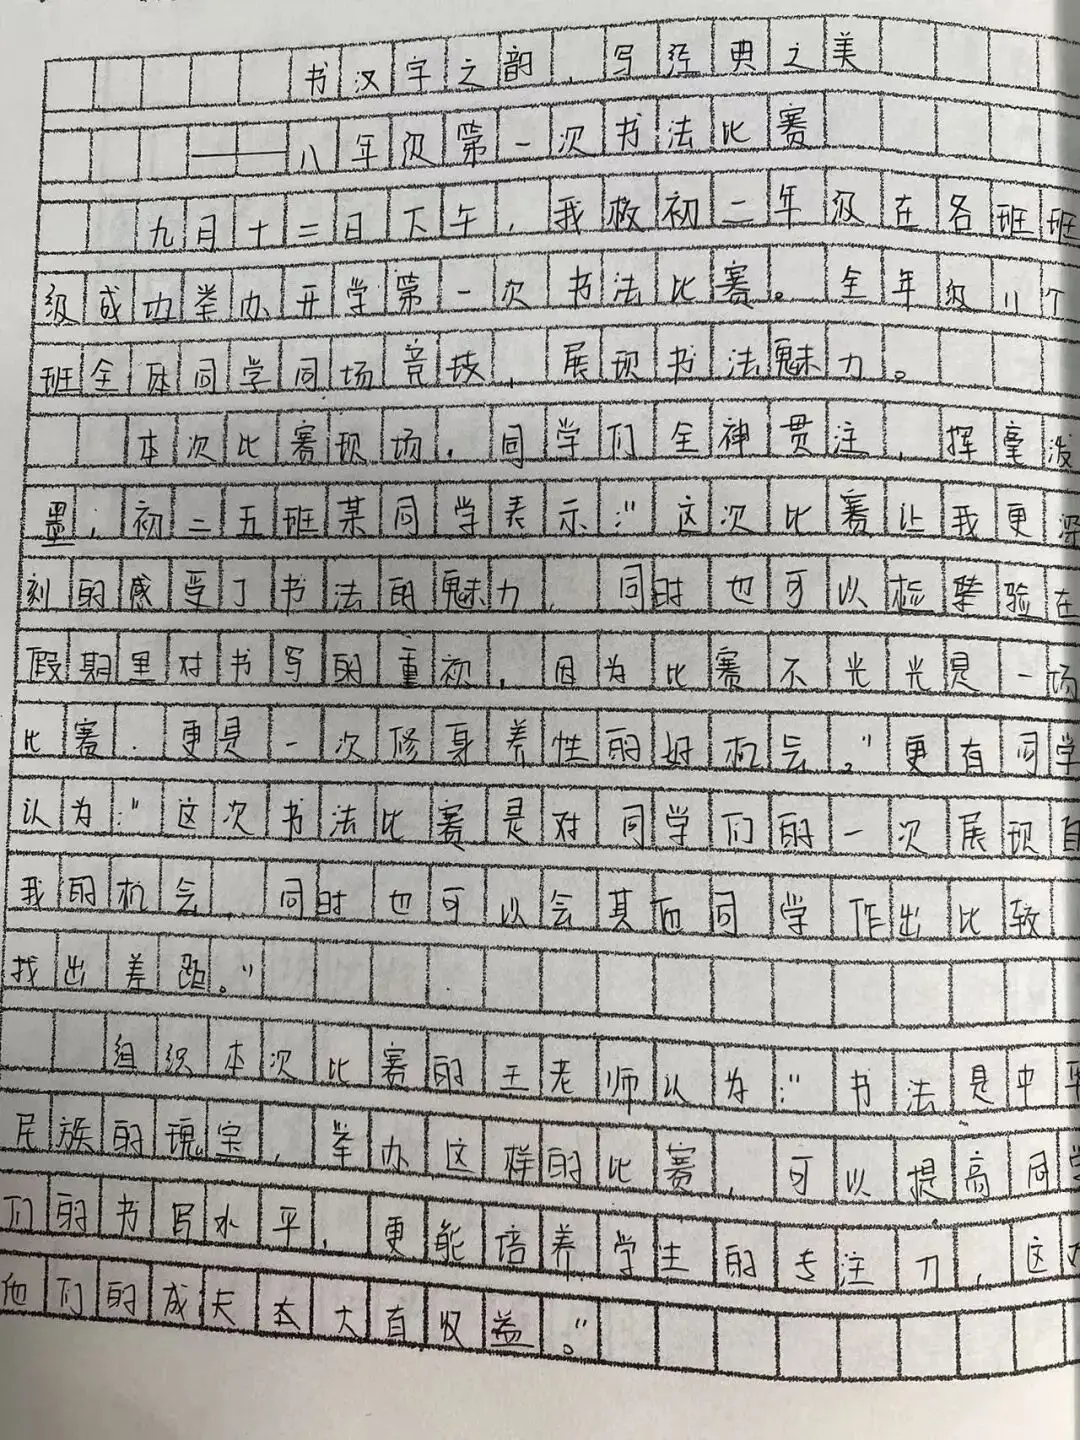 书汉字之韵,写经典之美
——八年级第一次书法比赛
九月十二日下午,我校初二年级在各班班
级成功举办开学第一次书法比赛。全年级11个
班全体同学同场竞技,展现书法魅力。
本次比赛现场,同学们全神贯注,挥毫泼
墨,初二五班某同学表示:"这次比赛让我更深
刻的感受了书法的魅力,同时也可以检擎验在
假期里对书写的重视,因为比赛不光光是一场
比赛.更是一次修身养性的好机会。"更有同学
认为:"这次书法比赛是对同学们的一次展现自
我的机会,同时也可以会其他同学作出比较
找出差距。"
组织本次比赛的王老师认为:"书法是中华
民族的瑰宝,举办这样的比赛,可以提高同学
们的书写水平,更能培养学生的专注力,这
他们的成大有收益。"